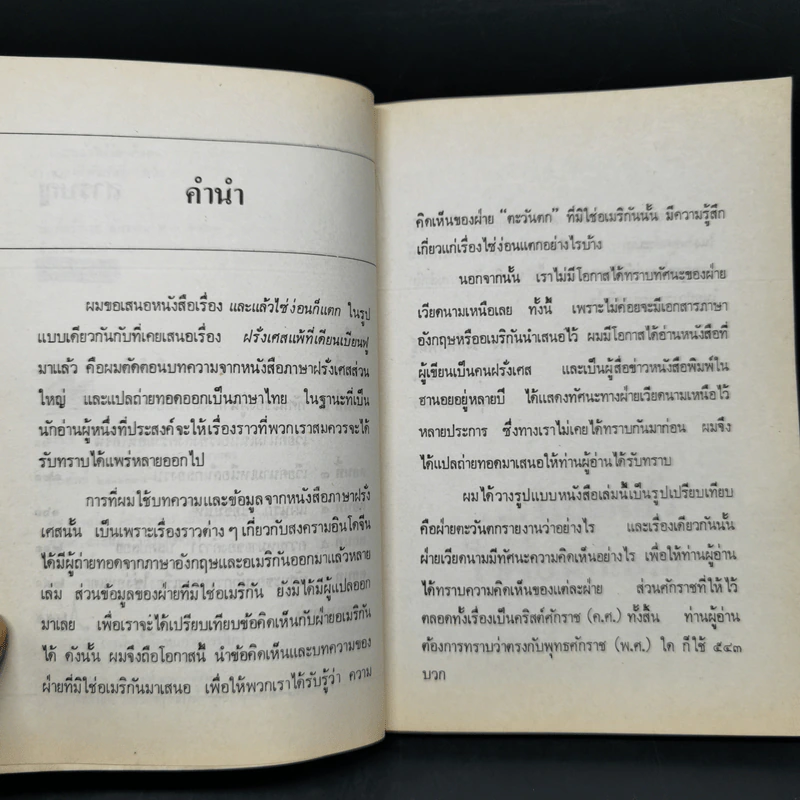 คำนำ
ผมขอเสนอหนังสือเรื่อง และแล้วไซ่ง่อนก็แตก ในรูป
แบบเดียวกันกับที่เคยเสนอเรื่อง ฝรั่งเศสแพ้ที่เดียนเบียนฟู
มาแล้ว คือผมตัดตอนบทความจากหนังสือภาษาฝรั่งเศสส่วน
ใหญ่ และแปลถ่ายทอดออกเป็นภาษาไทย ในฐานะที่เป็น
นักอ่านผู้หนึ่งที่ประสงค์จะให้เรื่องราวที่พวกเราสมควรจะได้
รับทราบได้แพร่หลายออกไป
การที่ผมใช้บทความและข้อมูลจากหนังสือภาษาฝรั่ง
เศสนั้น เป็นเพราะเรื่องราวต่าง ๆ เกี่ยวกับสงครามอินโดจีน
ได้มีผู้ถ่ายทอดจากภาษาอังกฤษและอเมริกันออกมาแล้วหลาย
เล่ม ส่วนข้อมูลของฝ่ายที่มิใช่อเมริกัน ยังมิได้มีผู้แปลออก
มาเลย เพื่อเราจะได้เปรียบเทียบข้อคิดเห็นกับฝ่ายอเมริกัน
ได้ ดังนั้น ผมจึงถือโอกาสนี้ นำข้อคิดเห็นและบทความของ
ฝ่ายที่มิใช่อเมริกันมาเสนอ เพื่อให้พวกเราได้รับรู้ว่า ความ
คิดเห็นของฝ่าย "ตะวันตก" ที่มิใช่อเมริกันนั้น มีความรู้สึก
เกี่ยวแก่เรื่องไซ่ง่อนแตกอย่างไรบ้าง
นอกจากนั้น เราไม่มีโอกาสได้ทราบทัศนะของฝ่าย
เวียดนามเหนือเลย ทั้งนี้ เพราะไม่ค่อยจะมีเอกสารภาษา
อังกฤษหรืออเมริกันนำเสนอไว้ ผมมีโอกาสได้อ่านหนังสือที่
ผู้เขียนเป็นคนฝรั่งเศส และเป็นผู้สื่อข่าวหนังสือพิมพ์ใน
ฮานอยอยู่หลายปี ได้แสดงทัศนะทางฝ่ายเวียดนามเหนือไว้
หลายประการ ซึ่งทางเราไม่เคยได้ทราบกันมาก่อน ผมจึง
ได้แปลถ่ายทอดมาเสนอให้ท่านผู้อ่านได้รับทราบ
ผมได้วางรูปแบบหนังสือเล่มนี้เป็นรูปเปรียบเทียบ
คือฝ่ายตะวันตกรายงานว่าอย่างไร และเรื่องเดียวกันนั้น
ฝ่ายเวียดนามมีทัศนะความคิดเห็นอย่างไร เพื่อให้ท่านผู้อ่าน
ได้ทราบความคิดเห็นของแต่ละฝ่าย ส่วนศักราชที่ให้ไว้
ตลอดทั้งเรื่องเป็นคริสต์ศักราช (ค.ศ.) ทั้งสิ้น ท่านผู้อ่าน
ต้องการทราบว่าตรงกับพุทธศักราช (พ.ศ.) ใด ก็ใช้ ๕๔๓
บวก